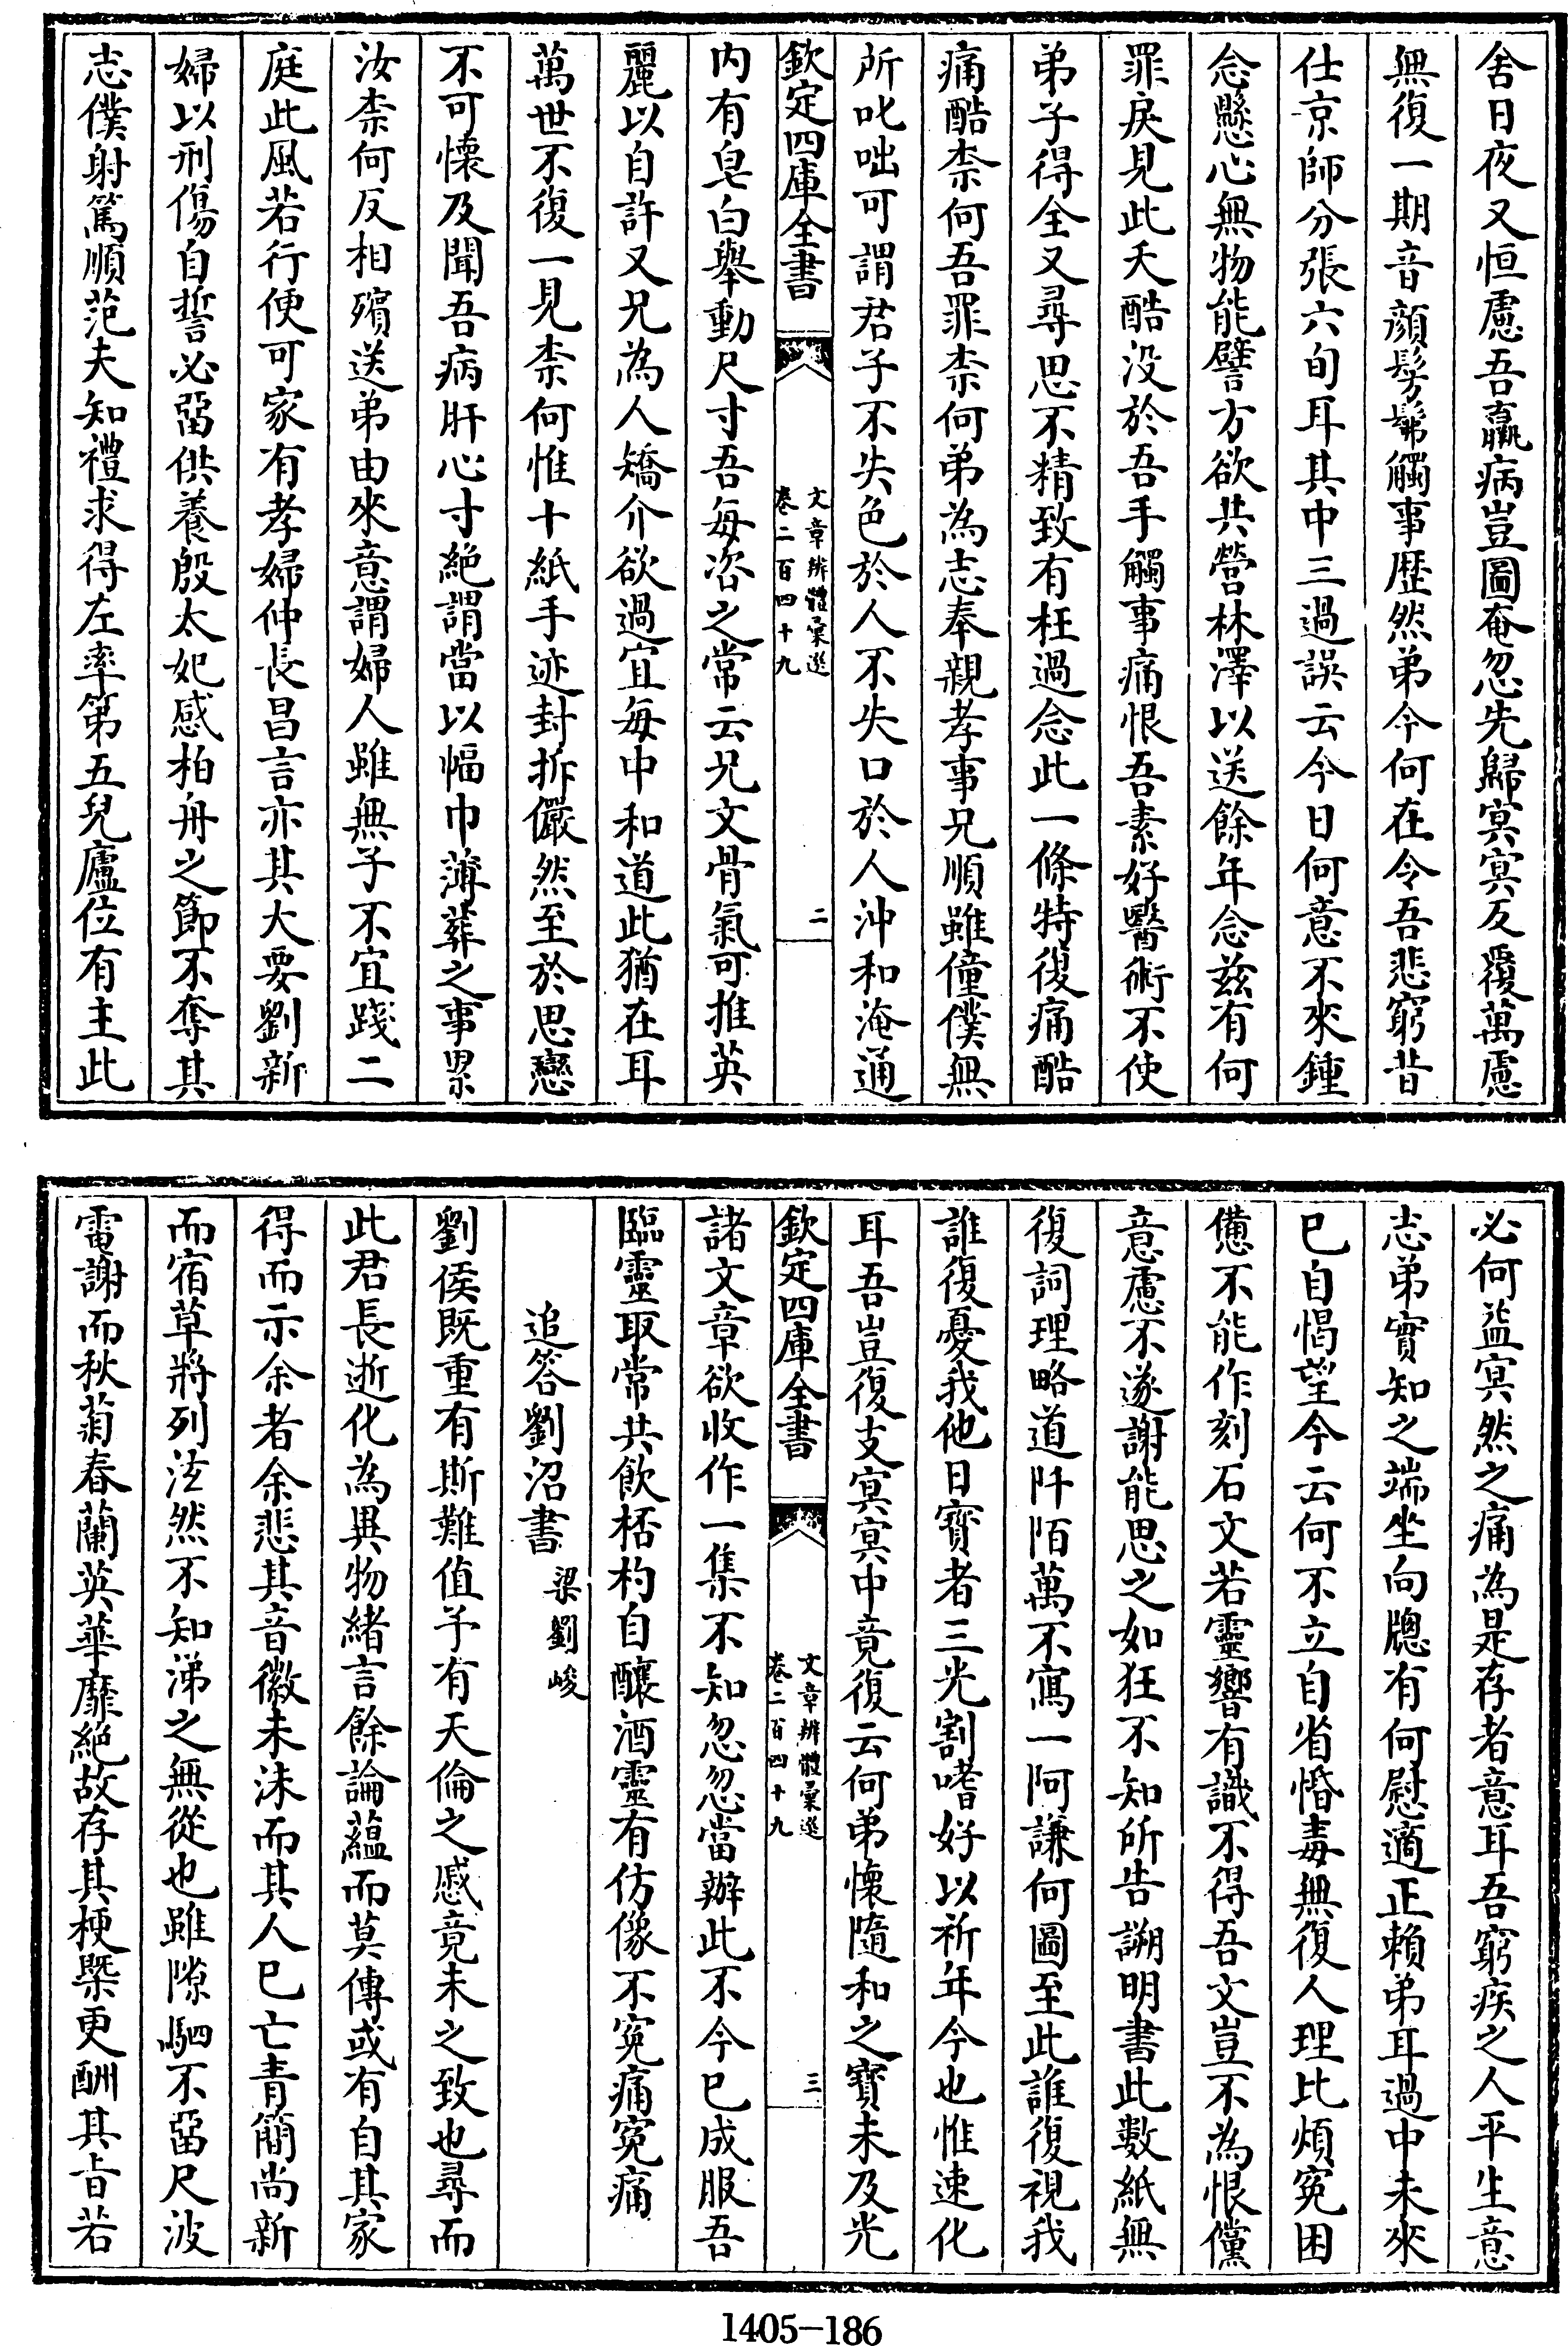 舍日夜又恒慮吾羸病豈圖奄忽先歸冥冥反覆萬慮
無復一期音顔髣髴觸事歴然弟今何在令吾悲窮昔
仕京師分張六旬耳其中三過誤云今日何意不來鍾
念懸心無物能譬方欲共營林澤以送餘年念兹有何
罪戾見此夭酷没於吾手觸事痛恨吾素好醫術不使
弟子得全又尋思不精致有枉過念此一條特復痛酷
痛酷柰何吾罪柰何弟為志奉親孝事兄順雖僮僕無
所叱咄可謂君子不失色於人不失口於人沖和淹通
欽定四庫全書
文章辨體彙選
卷二百四十九
二
内有皂白舉動尺寸吾每咨之常云兄文骨氣可推英
麗以自許又兄為人矯介欲過宜每中和道此猶在耳
萬世不復一見柰何惟十紙手迹封拆儼然至於思戀
不可懷及聞吾病肝心寸絶謂當以幅巾薄葬之事累
汝柰何反相殯送弟由來意謂婦人雖無子不宜踐二
庭此風若行便可家有孝婦仲長昌言亦其大要劉新
婦以刑傷自誓必留供養殷太妃感柏舟之節不奪其
志僕射篤順范夫知禮求得左率第五兒廬位有主此
必何益冥然之痛為是存者意耳吾窮疾之人平生意
志弟實知之端坐向牕有何慰適正賴弟耳過中未來
已自惕望今云何不立自省惛毒無復人理比煩寃困
憊不能作刻石文若靈響有識不得吾文豈不為恨儻
意慮不遂謝能思之如狂不知所告諵明書此數紙無
復詞理略道阡陌萬不寫一阿謙何圖至此誰復視我
誰復憂我他日寳者三光割嗜好以祈年今也惟速化
耳吾豈復支冥冥中竟復云何弟懷隨和之寳未及光
欽定四庫全書
文章辨體彙選
卷二百四十九
三
諸文章欲收作一集不知忽忽當辦此不今已成服吾
臨靈取常共飲桮杓自釀酒靈有仿像不寃痛寃痛
追答劉沼書 梁劉峻
劉侯既重有斯難值予有天倫之慼竟未之致也尋而
此君長逝化為異物緒言餘論藴而莫傳或有自其家
得而示余者余悲其音徽未沫而其人已亡青簡尚新
而宿草將列泫然不知涕之無從也雖隙駟不留尺波
電謝而秋菊春蘭英華靡絶故存其梗槩更酬其旨若
1405-186